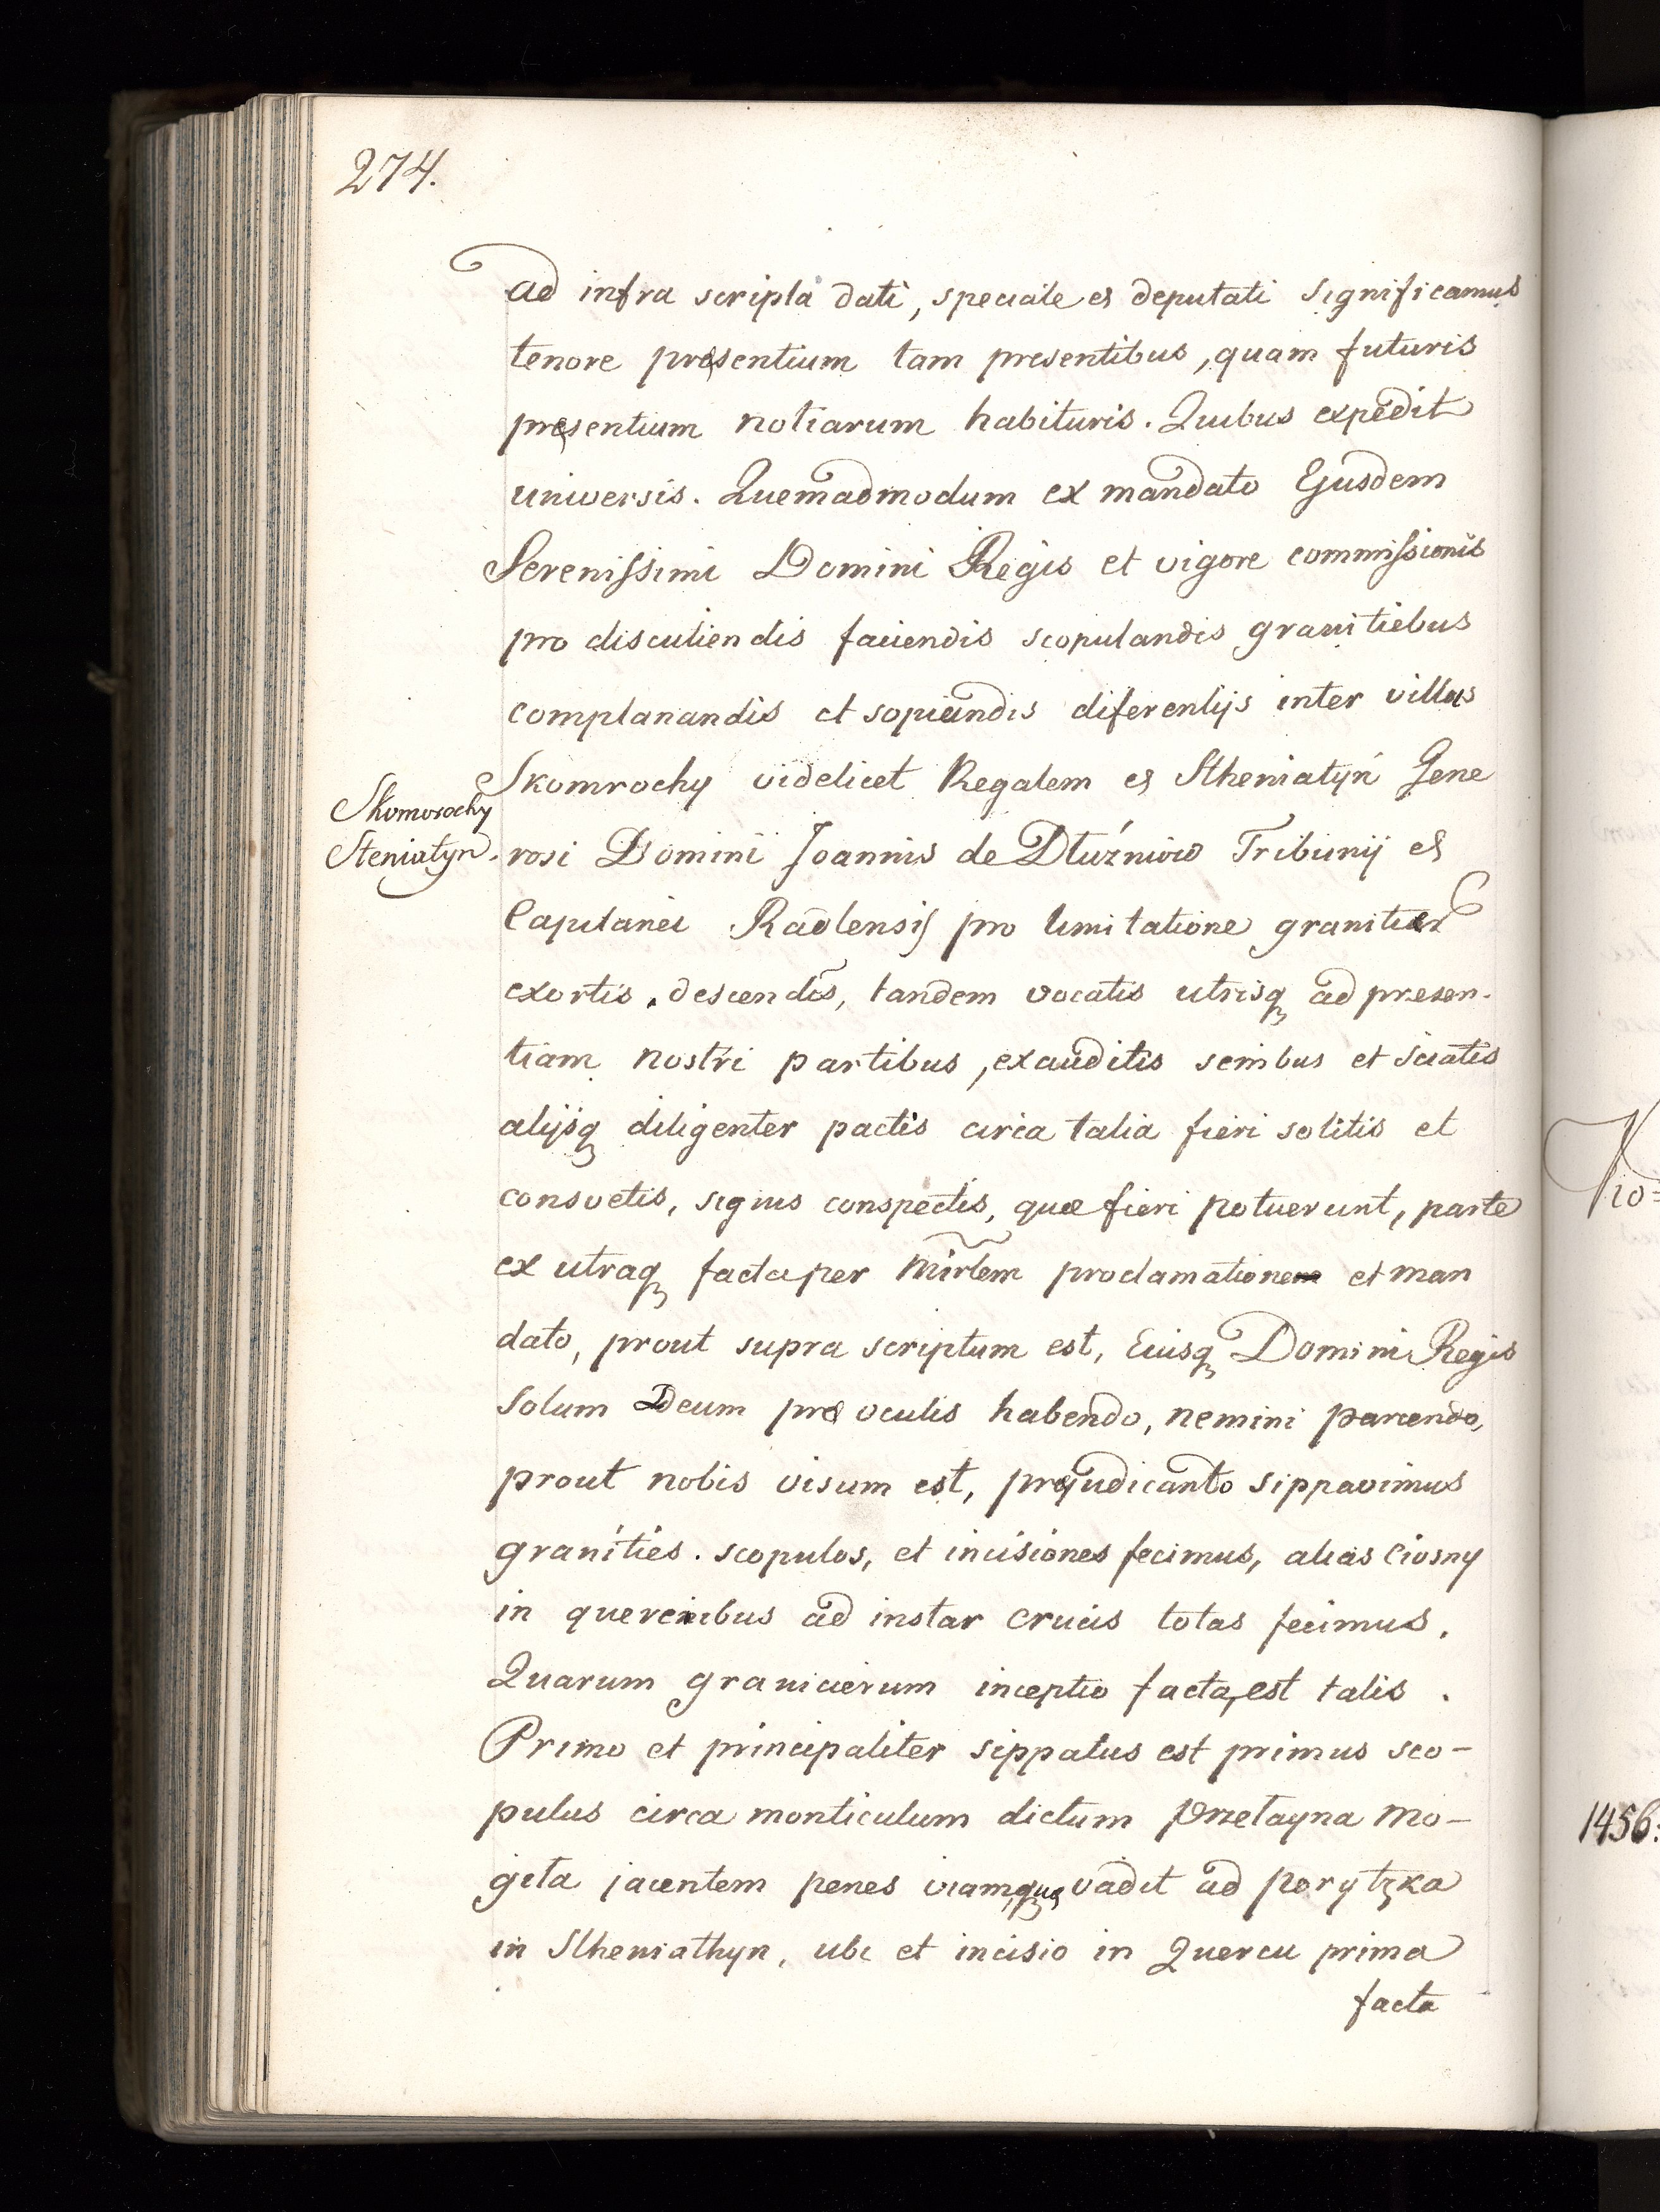 274.
ad infra scripta dati, speciale et deputati significamus
tenore presentium tam presentibus, quam futuris
presentium notiarum habituris. Quibus expedit
universis. Quemadmodum ex mandato Ejusdem
Serenissimi Domini Regis et vigore commissionis
pro discutiendis faciendis scopulandis granitiebus
complanandis et sopiendis diferentijs inter villas
Skomrochy videlicet Regalem et Stheniatyn Gene
Skomorochy
Steniatyn.
rosi Domini Joannis de Dłużniow Tribunij et
Capitanei Radlensis pro limitatione granitier
exortis, descendis, tandem vocatis utrisq ad presen-
tiam nostri partibus, exauditis senibus et sciatis
alijsq diligenter pactis circa talia fieri solitis et
consvetis, signis conspectis, quæ fieri potuerunt, parte
ex utraq facta per Mirlem proclamatione et man
dato, prout supra scriptum est, Eiusq Domini Regis
Solum Deum præ oculis habendo, nemini parcendo,
prout nobis visum est, prejudicanto sippavimus
granities. scopulos, et incisiones fecimus, alias Ciosny
in quercubus ad instar crucis totas fecimus.
Quarum granicierum inceptio facta, est talis.
Primo et principaliter sippatus est primus sco-
pulus circa monticulum dictum Przetayna mo-
gita jacentem penes viam, quæ vadit ad Porytzka
in Stheniathyn, ubi et incisio in Quercu prima
facta
1456: